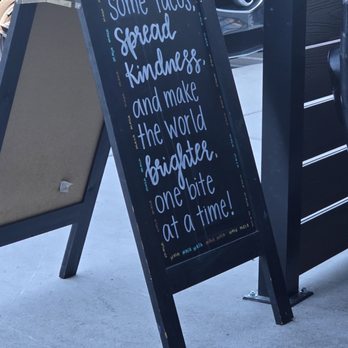 some tacos,
spread
kindness,
and make
the world
brighter,
one bite
at a time!